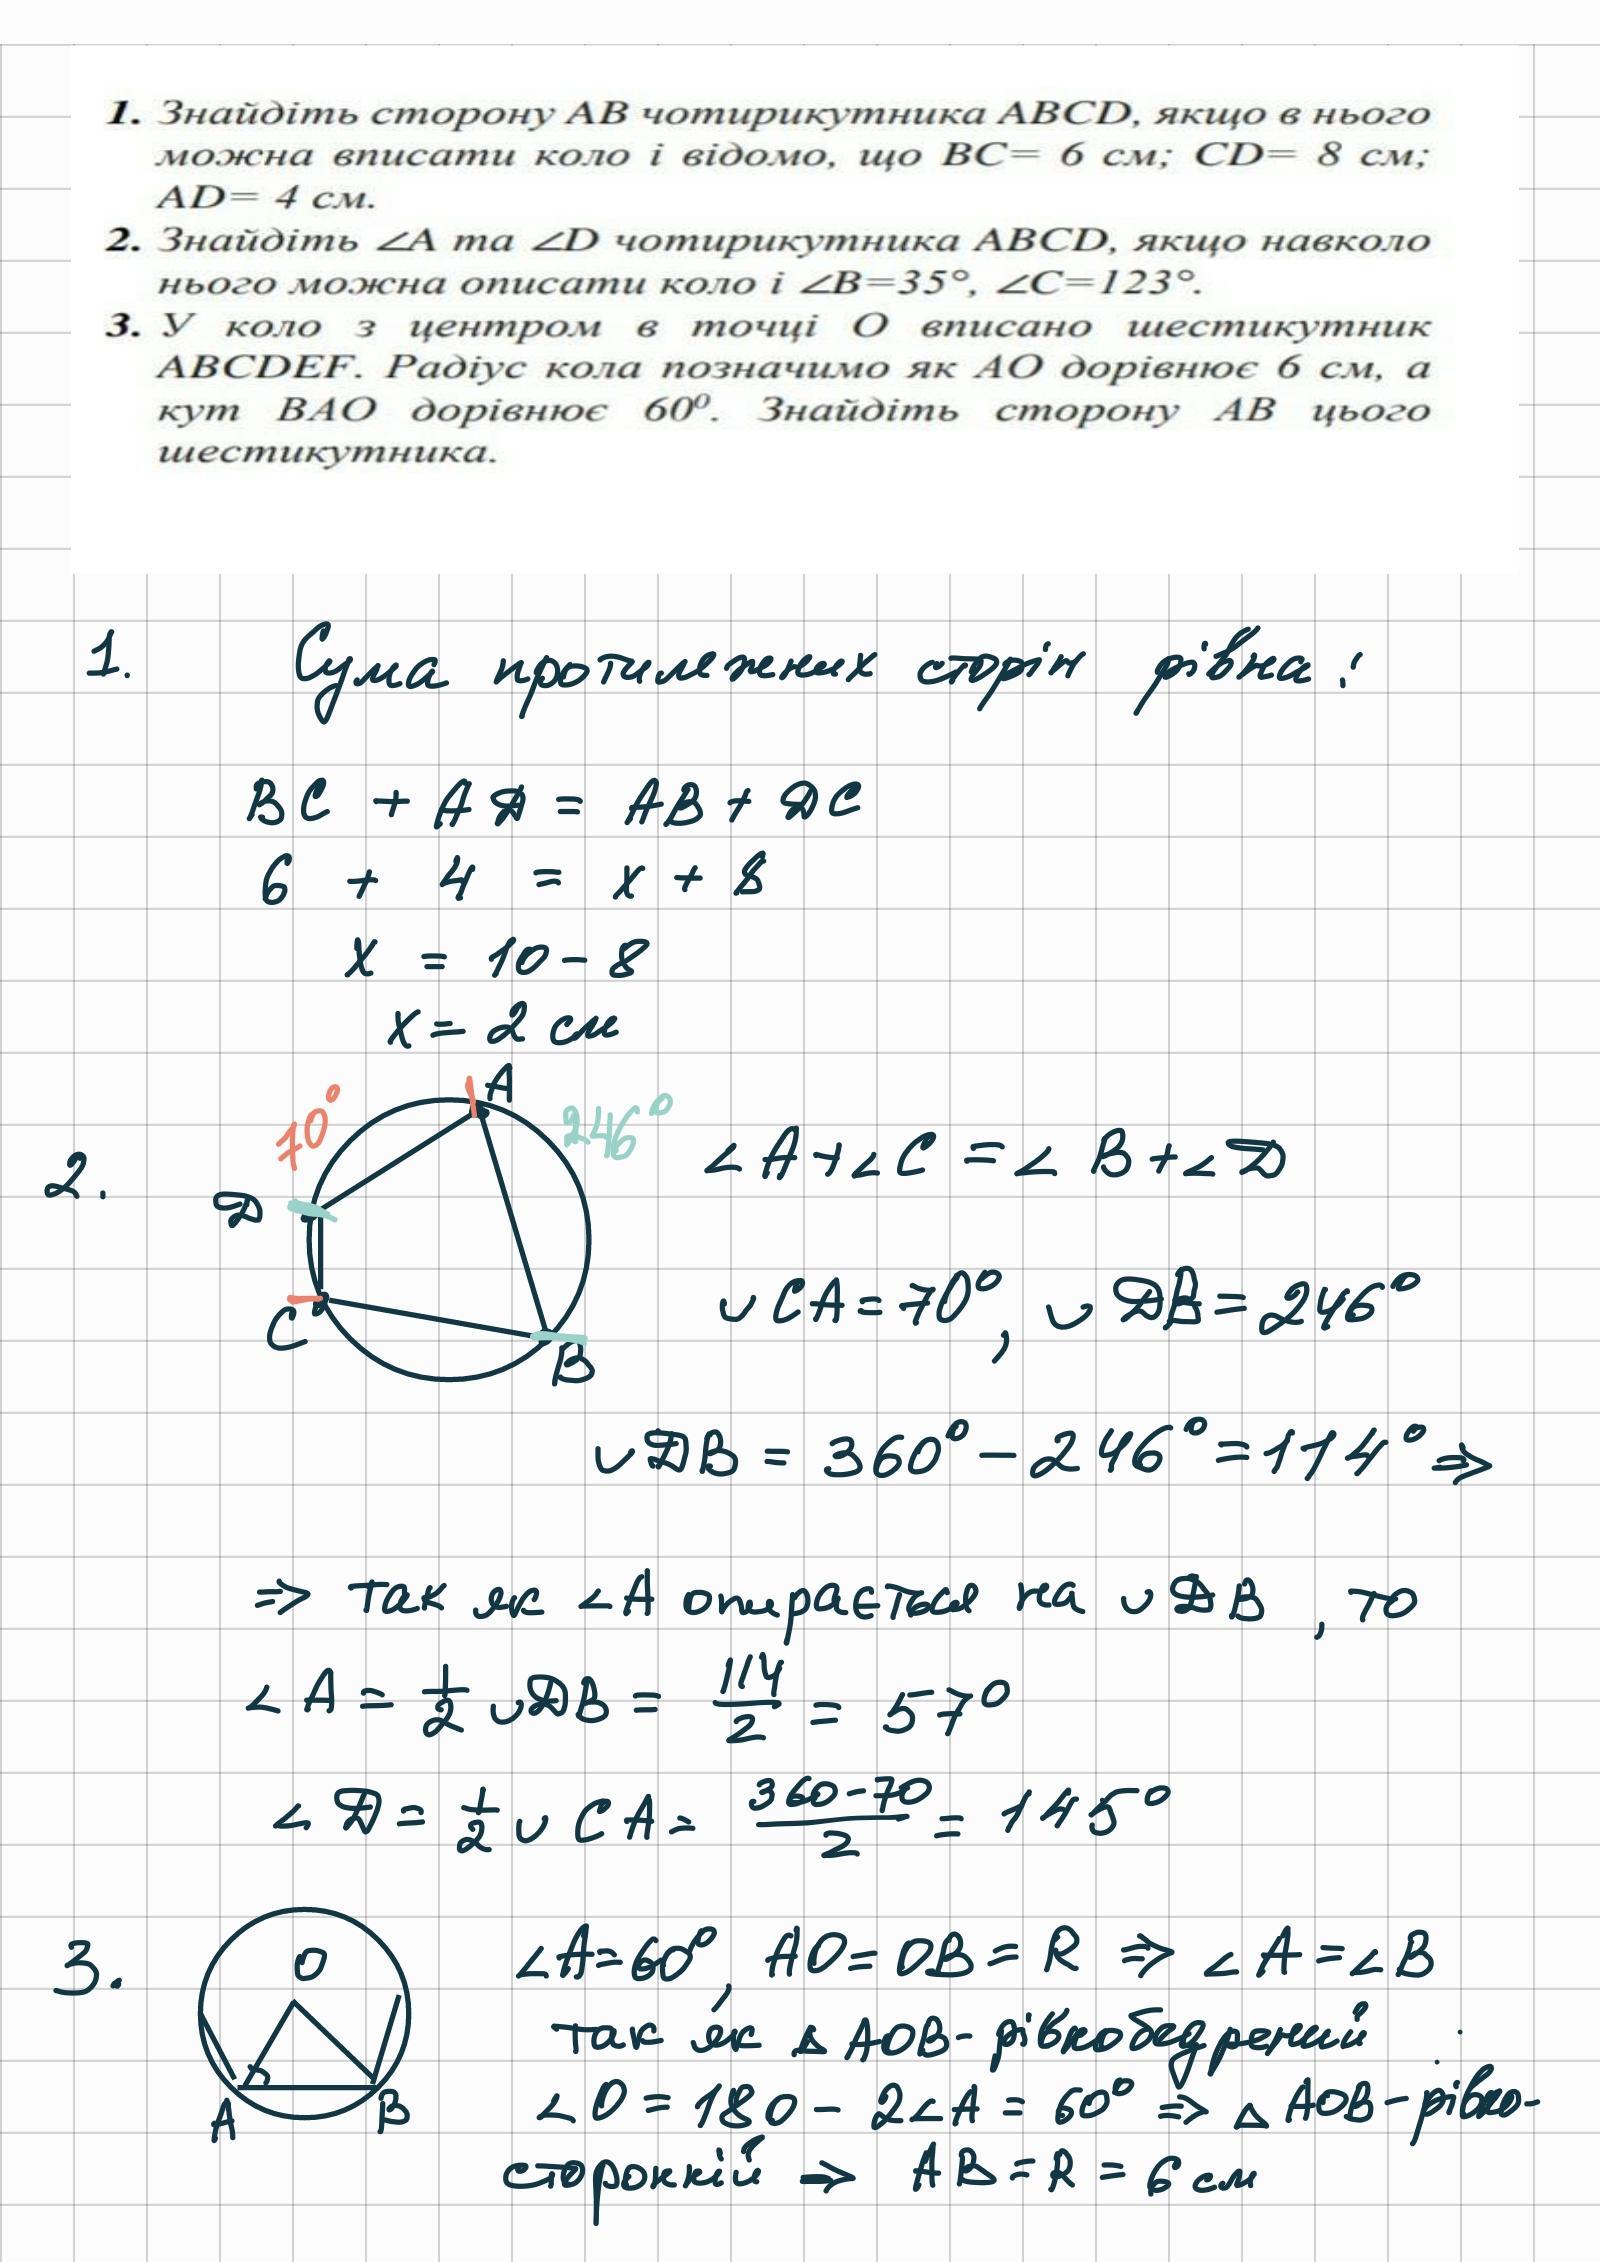 1. Знайдіть сторону AB чотирикутника ABCD, якщо в нього
можна вписати коло і відомо, що BC= 6 см; CD= 8 см;
AD= 4 см.
2. Знайдіть ∠A та ∠D чотирикутника ABCD, якщо навколо
нього можна описати коло і ∠B=35°, ∠C=123°.
3. У коло з центром в точці O вписано шестикутник
ABCDEF. Радіус кола позначимо як AO дорівнює 6 см, а
кут BAO дорівнює 60⁰. Знайдіть сторону AB цього
шестикутника.
1. Сума протилежних сторін рівна:
BC + AD = AB + DC
6 + 4 = x + 8
x = 10 - 8
x = 2 см
2.
70°
A
246°
D
C
B
∠A + ∠C = ∠B + ∠D
∪CA = 70°, ∪DB = 246°
∪DB = 360° - 246° = 114° ⇒
⇒ так як ∠A опирається на ∪DB, то
∠A = 1/2 ∪DB = 114/2 = 57°
∠D = 1/2 ∪CA = 360-70/2 = 145°
3.
O
A
B
∠A=60°, AO=OB=R ⇒ ∠A=∠B
так як △AOB-рівнобедрений
∠O = 180 - 2∠A = 60° ⇒ △AOB-рівно-
сторонній ⇒ AB = R = 6 см